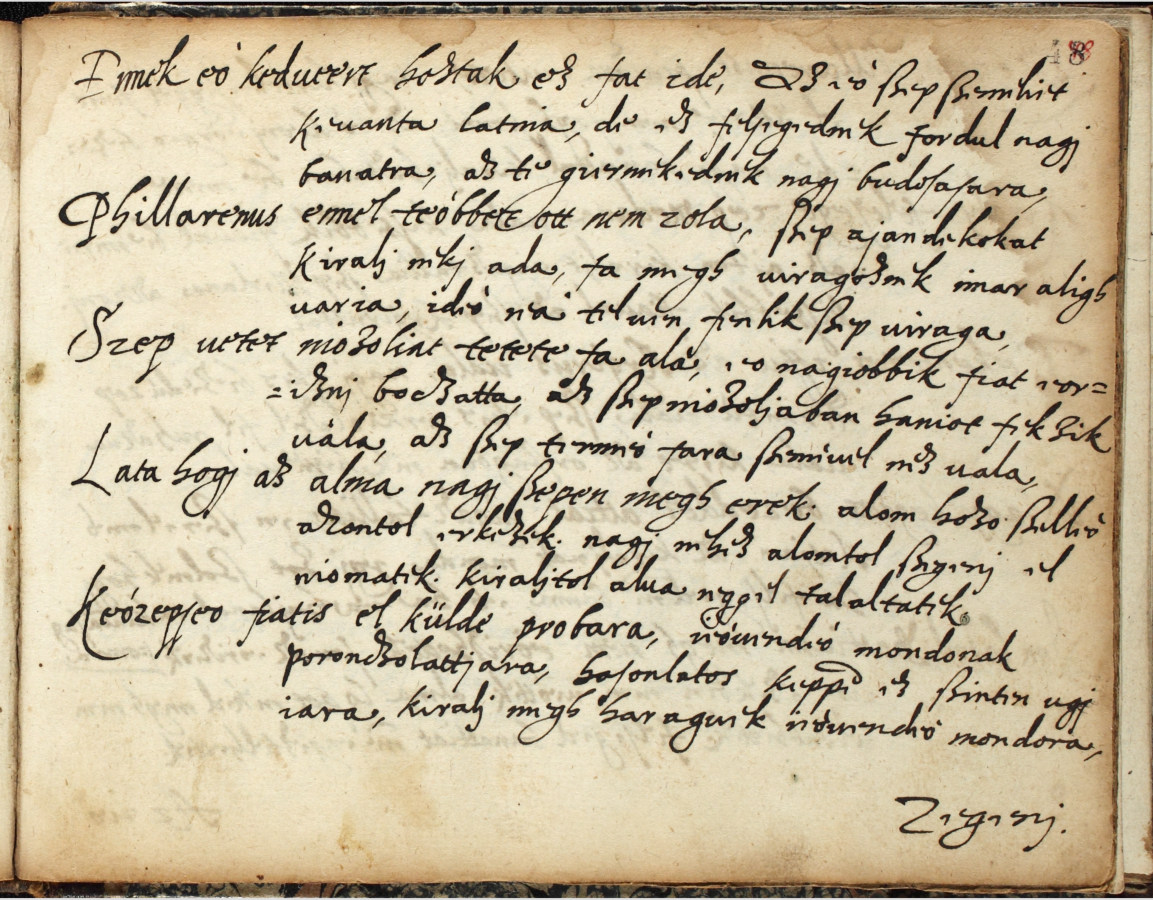 18
Ennek eó kedueert hoztak ez fat ide, Az eó szep szemeliet
Kiuanta latnia, de ez felsegednek fordul nagj
banatra, az te giermekednek nagj budosasara,
Phillarenus ennel teóbbet ott nem zola, szep ajandekokat
Kiralj nekj ada, fa megh viragoznek imar aligh
varia, ideó neá teluen fenlik szep uiraga,
Szep vetet niozoliat tetete fa alá, eo nagiobbik fiat eor=
=izni boczatta, az szep niozoljaban haniot fekzik
vala, az szep termeó fara szemeuel nez uala,
Lata hogj az alma nagj szepen megh erek. alom hozo szelleó
azontol erkezek. nagj nehez alomtol szegenj el
niomatek. kiraljtol alua reggel talaltatek.
Keózepseo fiatis el külde probara, ieóuendeó mondonak
poronczolattjara, hasonlatos keppe ez szinten ugj
iara, kiralj megh haraguek ieóuendeó mondora,
Zegenj.